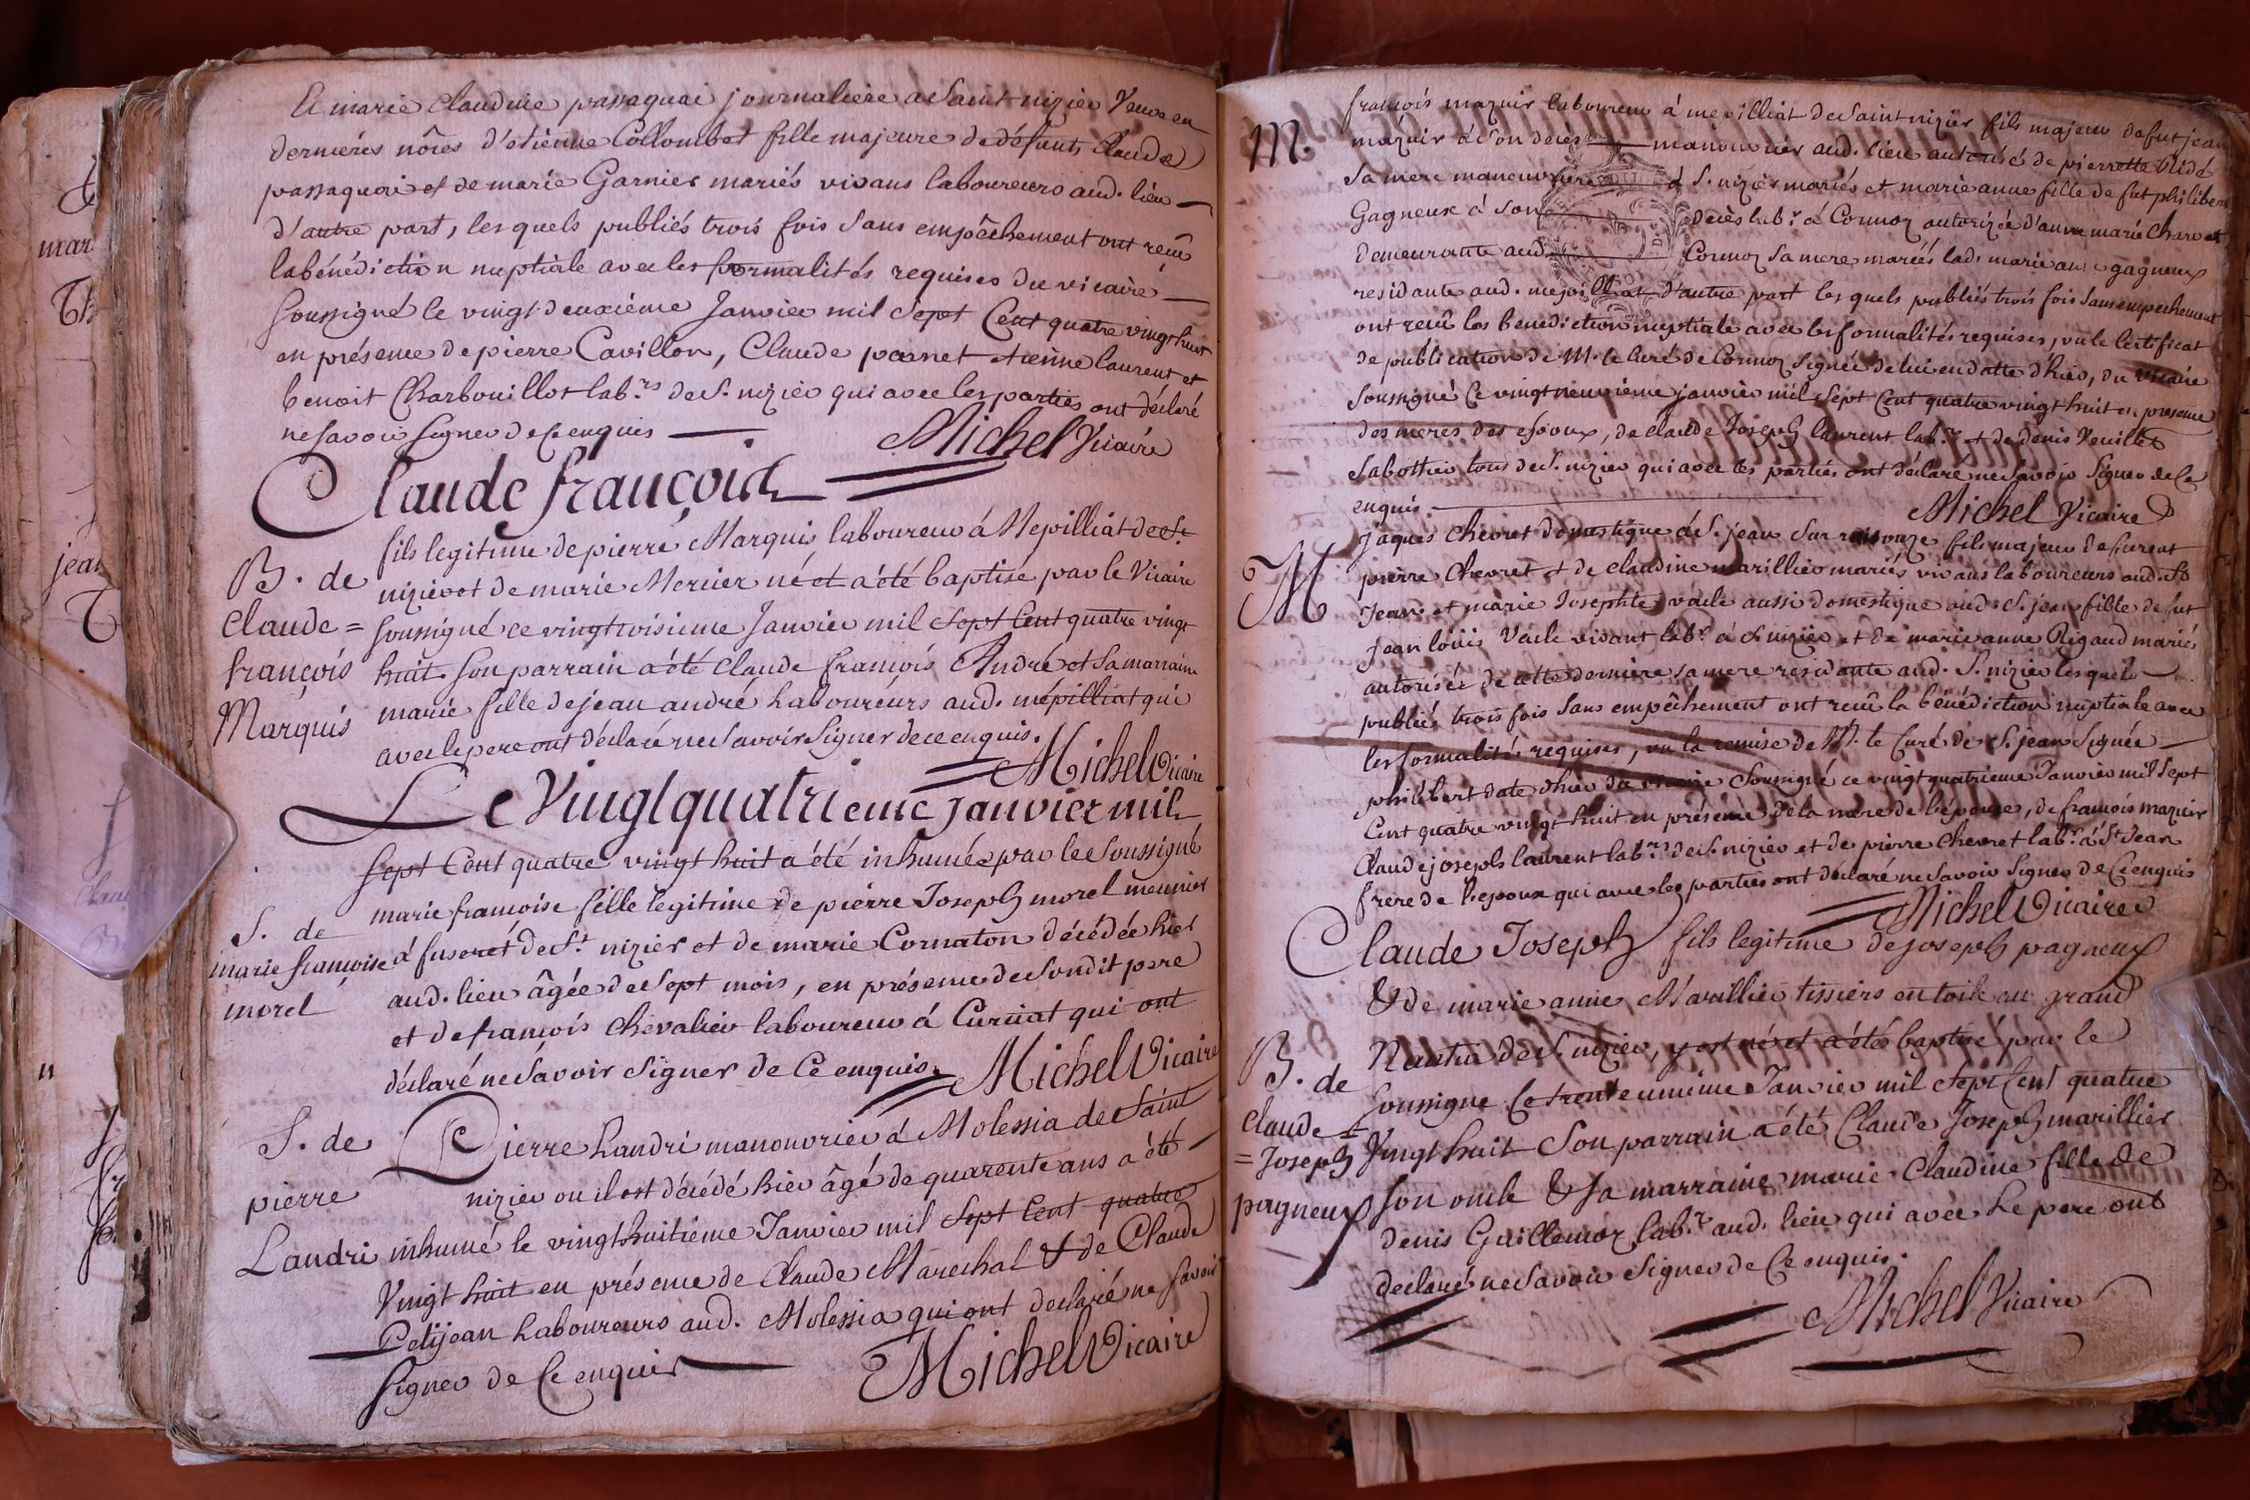 Et marie claudine passaquai journaliere a Saint nizier Veuve en
derniéres nôces d'etienne Collombet fille majeure de défunts Claude
passaquai et de marie Garnier mariés vivans laboureurs aud. lieu
d'autre part, lesquels publiés trois fois sans empêchement ont reçu
la bénédiction nuptiale avec les formalités requises du vicaire
soussigné le vingt deuxiéme Janvier mil sept Cent quatre vingt huit
en présence de pierre Cavillon, Claude parnet etienne laurent et
benoit Charbouillot lab.rs de S. nizier qui avec les parties ont déclaré
ne savoir signer de ce enquis
Michel Vicaire
Claude françois
fils legitime de pierre Marquis laboureur á Mepilliat de St.
nizier et de marie Mercier né et a été baptisé par le Vicaire
soussigné ce vingt troisieme Janvier mil sept Cent quatre vingt
huit son parrain a été claude françois André et sa marraine
marie fille de jean andré Laboureurs aud. mépilliat qui
avec le pere ont déclaré ne savoir signer de ce enquis.
Michel Vicaire
B. de
Claude =
françois
Marquis
Le Vingt quatrieme janvier mil
sept Cent quatre vingt huit a été inhumée par le soussigné
marie françoise fille legitime de pierre Joseph morel meunier
á fuseret de St. nizier et de marie Cornaton décédée hier
aud. lieu âgée de sept mois, en présence de son dit pere
et de françois chevalier laboureur á Curciat qui ont
déclaré ne sávoir signer de Ce enquis.
Michel Vicaire
S. de
marie françoise
morel
Pierre Landri manouvrier á Molessia de Saint
nizier ou il est décédé hier âgé de quarente ans a été
inhumé le vingt huitiéme Janvier mil sept Cent quatre
Vingt huit en présence de Claude Marechal & de Claude
Petijean Laboureurs aud. Molessia qui ont declaré ne savoir
signer de Ce enquis
Michel Vicaire
S. de
pierre
Landri
françois mazuir laboureur á mepilliat de Saint nizier fils majeur de fut jean
mazuir á son decès manouvrier aud. lieu autorisé de pierrette
sa mere manouvriere á S. nizier mariés et marie anne fille de fut philibert
Gagneux á son decès lab.r á Cormoz autorizée d'anne marie
demeurante aud. Cormoz sa mere mariés lad. marie anne gagneux
residante aud. mepilliat d'autre part lesquels publiés trois fois sans empechement
ont reçu la benediction nuptiale avec les formalités requises, vu le Certificat
de publication de M. le Curé de Cormoz signée de lui en datte d'hier, du vicaire
soussigné Ce vingt neuvieme janvier mil sept Cent quatre vingt huit en presence
des meres des epoux, de claude Joseph laurent lab.r et de denis
sabottier tous de S. nizier qui avec les parties ont déclaré ne savoir signer de Ce
enquis.
Michel Vicaire
M.
jaques chevret domestique á S. jean sur reissouze fils majeur de
pierre Chevret et de claudine marillier mariés vivans laboureurs aud. St
Jean et marie Josephte vaile aussi domestique aud. S. jean fille de fut
jean loüis Vaile vivant lab.r á S. nizier et de marie anne Rigaud mariés
autorisée de cette derniere sa mere residante aud. S. nizier lesquels
publiés trois fois sans empêchement ont reçu la bénédiction nuptiale avec
les formalités requises, vu la remise de M. le Curé de S. jean Signée
philibert date d'hier du vicaire Soussigné ce vingt quatrieme Janvier mil sept
Cent quatre vingt huit en présence de la mere de l'épouse, de francois mazuir
Claude joseph laurent lab.rs de S. nizier et de pierre chevret lab.r á St Jean
frere de l'epoux qui avec les parties ont déclaré ne savoir signer de Ce enquis
Michel Vicaire
M
Claude Joseph fils legitime de joseph pagneux
& de marie anne Marillier tissiers en toile au grand
Nantin de S. nizier, y est né et a étés baptisé par le
soussigné Ce trente unieme Janvier mil Sept Cent quatre
Vingt huit Son parrain a été Claude Joseph marillier
son oncle & sa marraine marie Claudine fille de
denis Guillemoz lab.r aud. lieu qui avec le pere ont
declaré ne savoir signer de Ce enquis.
Michel Vicaire
B. de
Claude =
= Joseph
pagneux